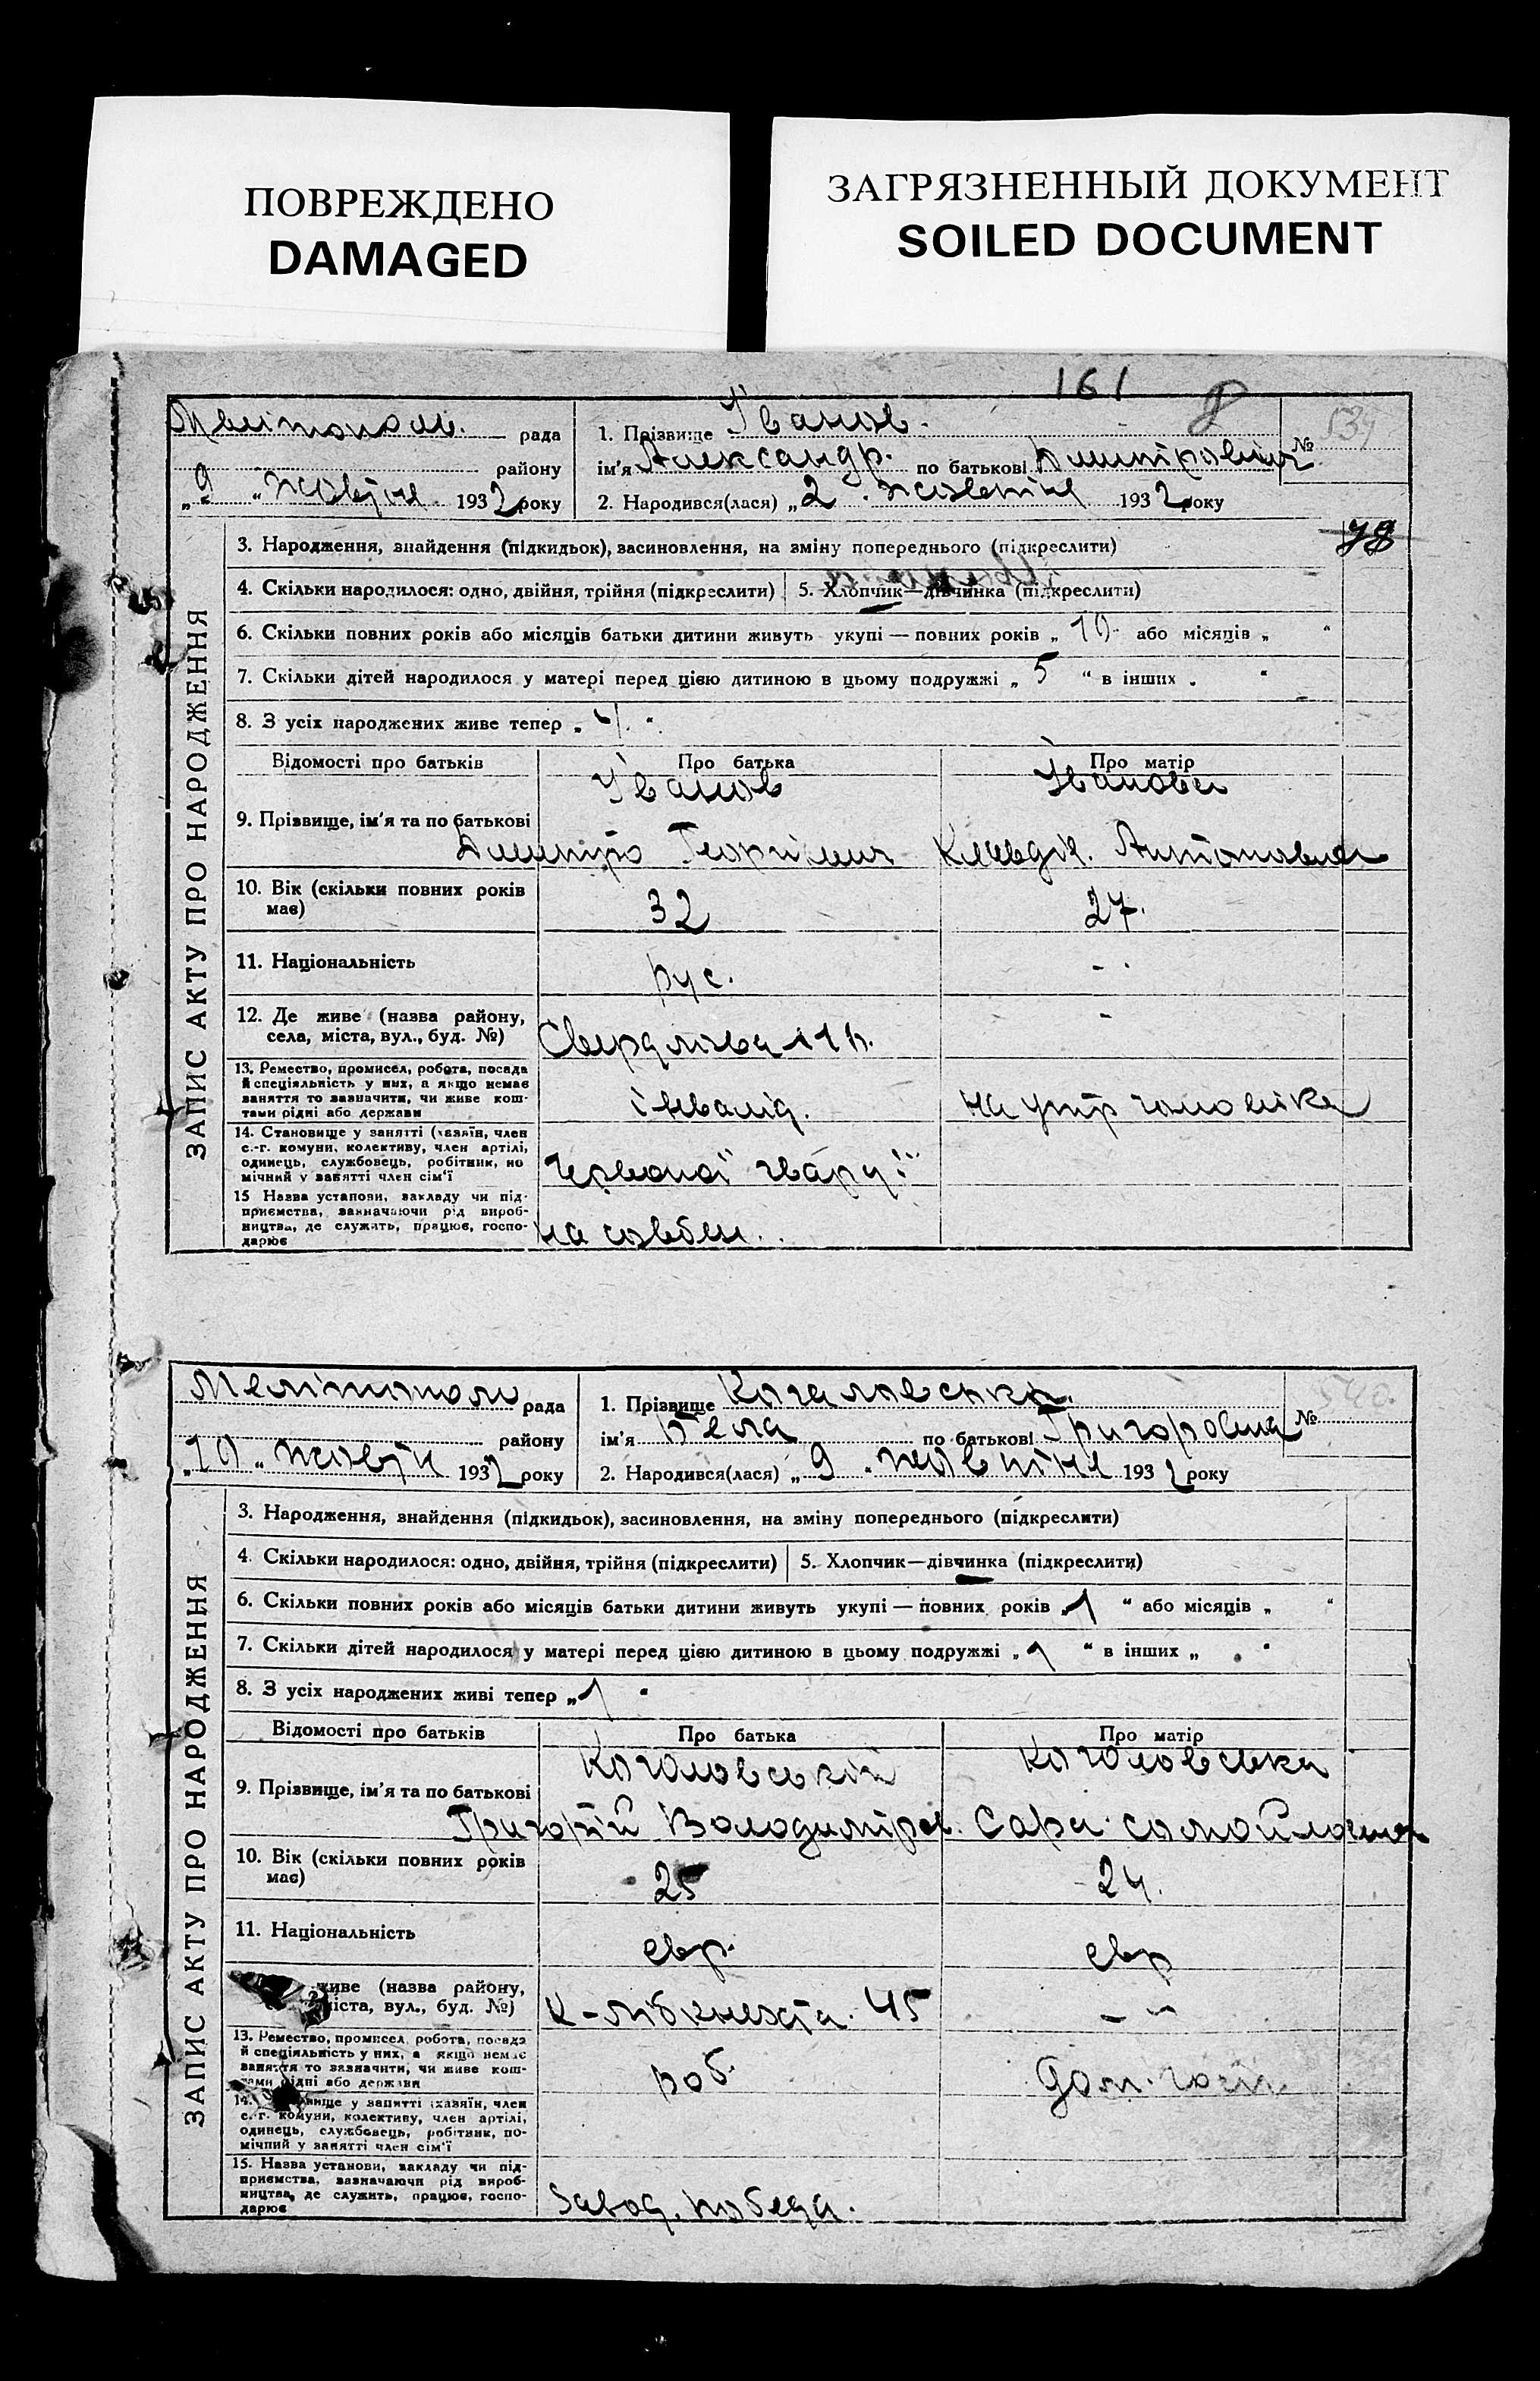 ПОВРЕЖДЕНО
DAMAGED
ЗАГРЯЗНЕННЫЙ ДОКУМЕНТ
SOILED DOCUMENT
161
рада
1. Прізвище Іванов.
№ 539
району
ім'я Александр. по батькові Дмитрович
„9“ жовтн 1932 року
2. Народився(лася) „2“ жовтня 1932 року
ЗАПИС АКТУ ПРО НАРОДЖЕННЯ
3. Народження, знайдення (підкидьок), засиновлення, на зміну попереднього (підкреслити)
78
4. Скільки народилося: одно, двійня, трійня (підкреслити)
5. Хлопчик—дівчинка (підкреслити)
6. Скільки повних років або місяців батьки дитини живуть укупі — повних років „10“ або місяців „ “
7. Скільки дітей народилося у матері перед цією дитиною в цьому подружжі „5“ в інших „ “
8. З усіх народжених живе тепер „ “
Відомості про батьків
Про батька
Про матір
9. Прізвище, ім'я та по батькові
Іванов
Іванова
Дмитро Георгіевич
Клавдія. Антоновна
10. Вік (скільки повних років має)
32
27.
11. Національність
рус.
- .
12. Де живе (назва району, села, міста, вул., буд. №)
Свердлова 11
13. Ремество, промисел, робота, посада
й спеціяльність у них, а якщо немає
заняття то зазначити, чи живе кош-
тами рідні або держави
інвалід.
на утр чоловіка
14. Становище у занятті (хазяїн, член
с.-г. комуни, колективу, член артілі,
одинець, службовець, робітник, по
мічний у занятті член сім'ї
Червоної гвардії
15 Назва установи, закладу чи під-
приємства, зазначаючи рід вироб-
ництва, де служить, працює, госпо-
дарює
на
Мелітополь рада
1. Прізвище Когаловська.
№ 540.
району
ім'я Бела по батькові Григоровна
„10“ жовтн 1932 року
2. Народився(лася) „9“ жовтня 1932 року
ЗАПИС АКТУ ПРО НАРОДЖЕННЯ
3. Народження, знайдення (підкидьок), засиновлення, на зміну попереднього (підкреслити)
4. Скільки народилося: одно, двійня, трійня (підкреслити)
5. Хлопчик—дівчинка (підкреслити)
6. Скільки повних років або місяців батьки дитини живуть укупі — повних років „1“ або місяців „ “
7. Скільки дітей народилося у матері перед цією дитиною в цьому подружжі „1“ в інших „ “
8. З усіх народжених живі тепер „1“
Відомості про батьків
Про батька
Про матір
9. Прізвище, ім'я та по батькові
Коголовській
Коголовська
Григорій Володиміров.
Сара самойловна
10. Вік (скільки повних років має)
25
24.
11. Національність
євр.
євр
живе (назва району,
міста, вул., буд. №)
К-Лібкнехта. 45
— „ —
13. Ремество, промисел, робота, посада
й спеціяльність у них, а якщо немає
заняття то зазначити, чи живе кош-
тами рідні або держави
роб.
дом. госп
14. у занятті (хазяїн, член
с.-г. комуни, колективу, член артілі,
одинець, службовець, робітник, по-
мічний у занятті член сім'ї
15. Назва установи, закладу чи під-
приємства, зазначаючи рід вироб-
ництва, де служить, працює, госпо-
дарює
завод. победа.